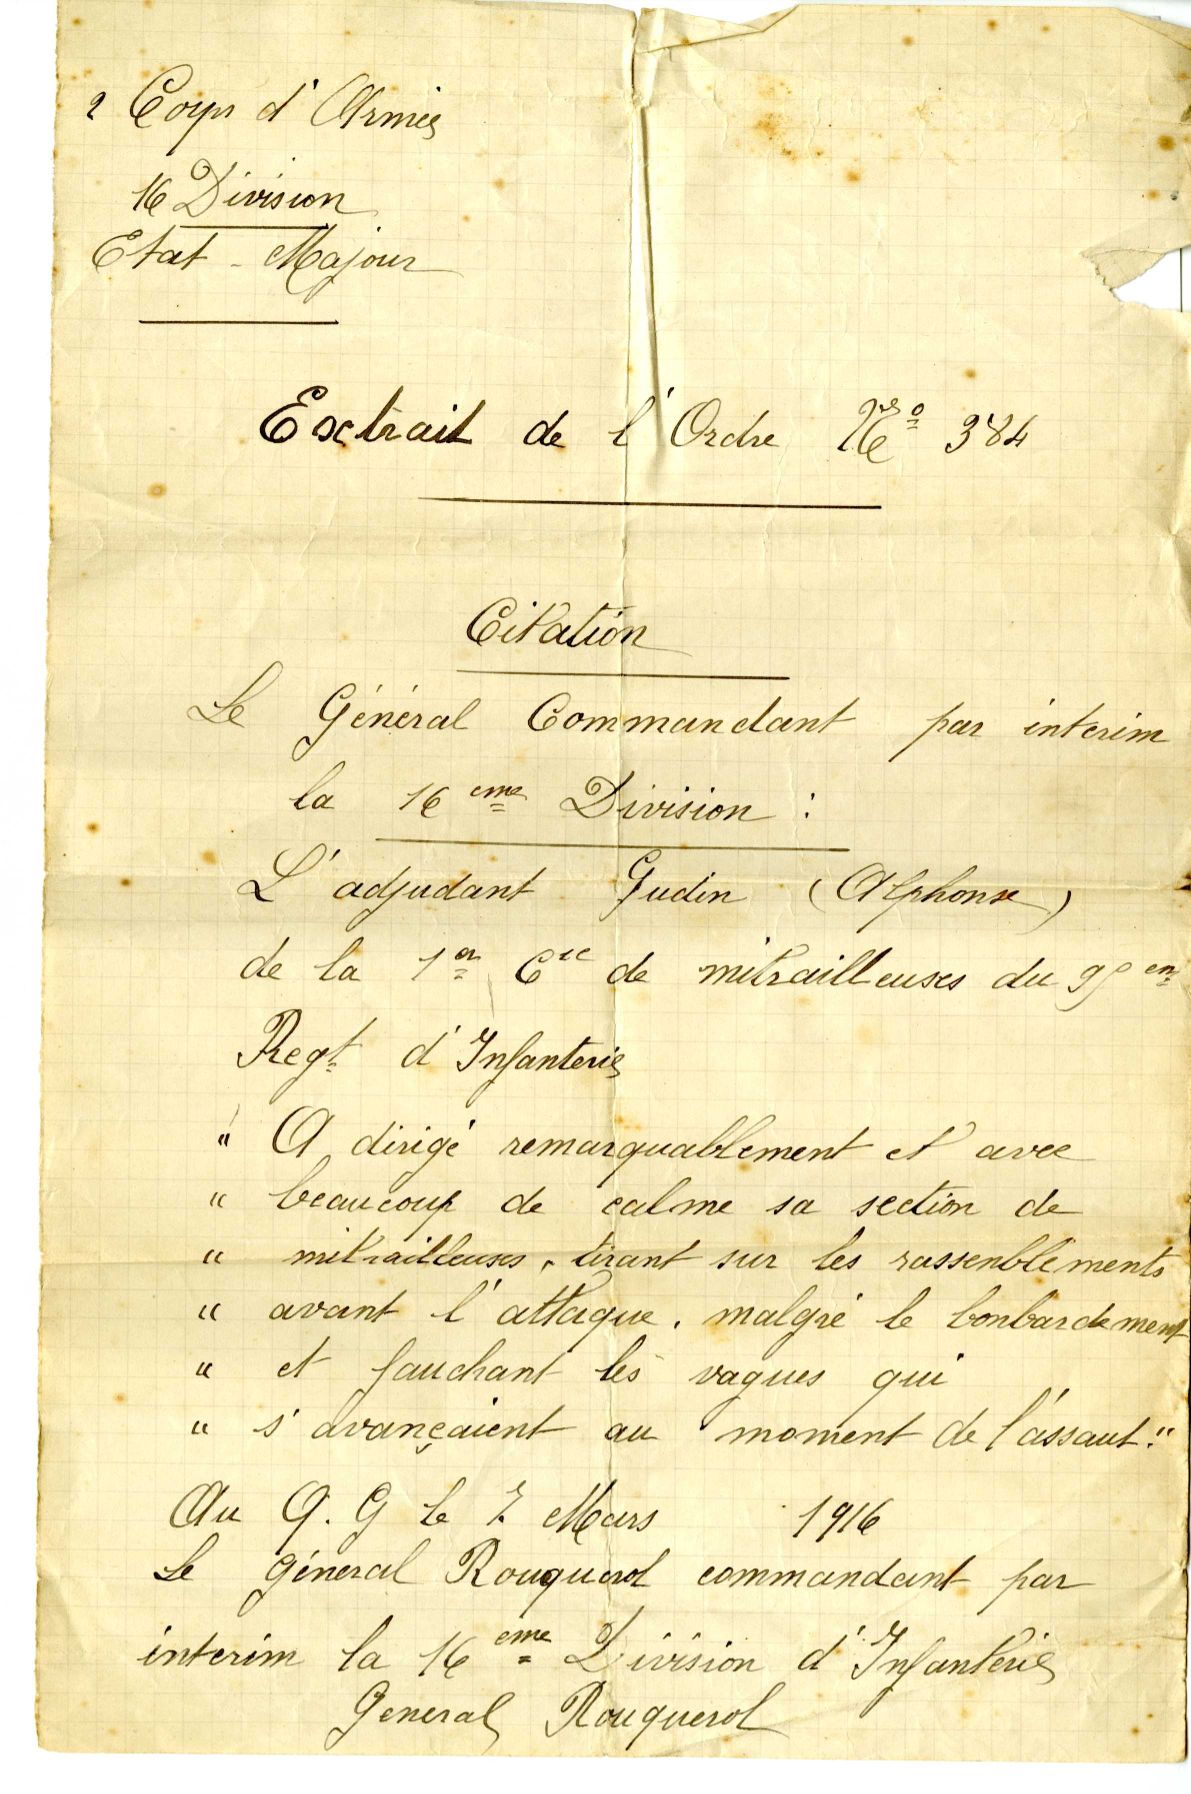 2 Corps d'Armée
16 Division
Etat-Majour
Esctrait de l'Ordre No 384
Citation
Le Général Commandant par interim
la 16 eme Division :
L'adjudant Gudin (Alphonse)
de la 1er Cie de mitrailleuses du 95 em
Regt d'Infanterie
" A dirigé remarquablement et avec
" beaucoup de calme sa section de
" mitrailleuses, tirant sur les rassenblements
" avant l'attaque. malgré le bonbardement
" et fauchant les vagues qui
" s'avançaient au moment de l'assaut."
Au Q.G le Mars 1916
Le général Rouquerol commandant par
interim la 16 eme Division d'Infanterie
General Rouquerol